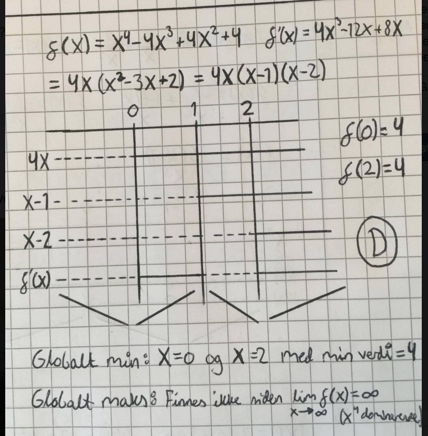 f(x) = x⁴-4x³+4x²+4 f'(x) = 4x³-12x+8x
= 4x(x²-3x+2) = 4x(x-1)(x-2)
0 1 2
f(0)=4
4x
f(2)=4
x-1
x-2
D
f'(x)
Globalt min: x=0 og x=2 med min verdi=4
Globalt maks: Finnes ikke siden lim f(x)=∞
x→∞ (x⁴ dominerende)